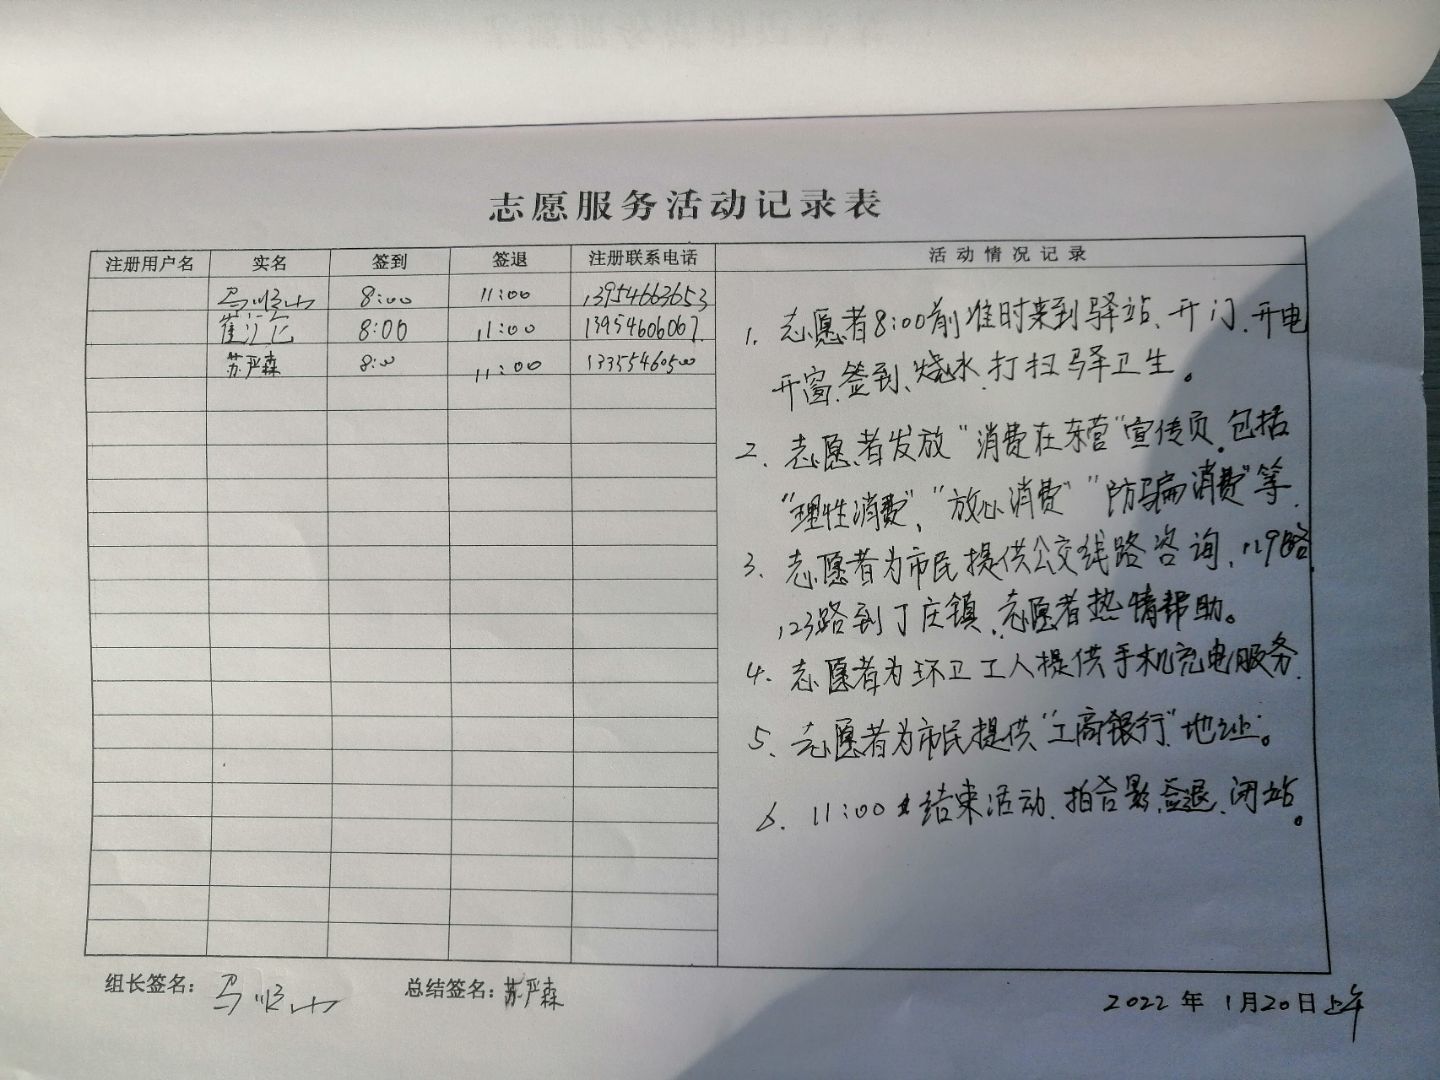 志愿服务活动记录表
注册用户名 实名 签到 签退 注册联系电话 活动情况记录
马顺山 8:00 11:00 13954663653
崔 8:00 11:00 13954606067
苏严森 8:00 11:00 13355460500
1. 志愿者8:00前准时来到驿站、开门、开电
开窗、签到、烧水、打扫驿卫生。
2. 志愿者发放“消费在东营”宣传页。包括
“理性消费”、“放心消费”“防骗消费”等.
3. 志愿者为市民提供公交线路咨询,129路
123路到丁庄镇.志愿者热情帮助。
4. 志愿者为环卫工人提供手机充电服务.
5. 志愿者为市民提供“工商银行”地址。
6. 11:00结束活动、拍合影、签退、闭站。
组长签名: 马顺山 总结签名: 苏严森
2022年1月20日上午